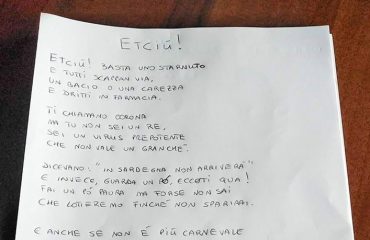 ETCIÚ!
ETCIÚ! BASTA UNO STARNUTO
E TUTTI SCAPPAN VIA,
UN BACIO O UNA CAREZZA
E DRITTI IN FARMACIA.
TI CHIAMANO CORONA
MA TU NON SEI UN RE,
SEI UN VIRUS PREPOTENTE
CHE NON VALE UN GRANCHÉ.
DICEVANO: "IN SARDEGNA NON ARRIVERÀ"
E INVECE, GUARDA UN PÓ, ECCOTI QUA!
FAI UN PÓ PAURA MA FORSE NON SAI
CHE LOTTEREMO FINCHÉ NON SPARIRAI.
E ANCHE SE NON É PIÙ CARNEVALE